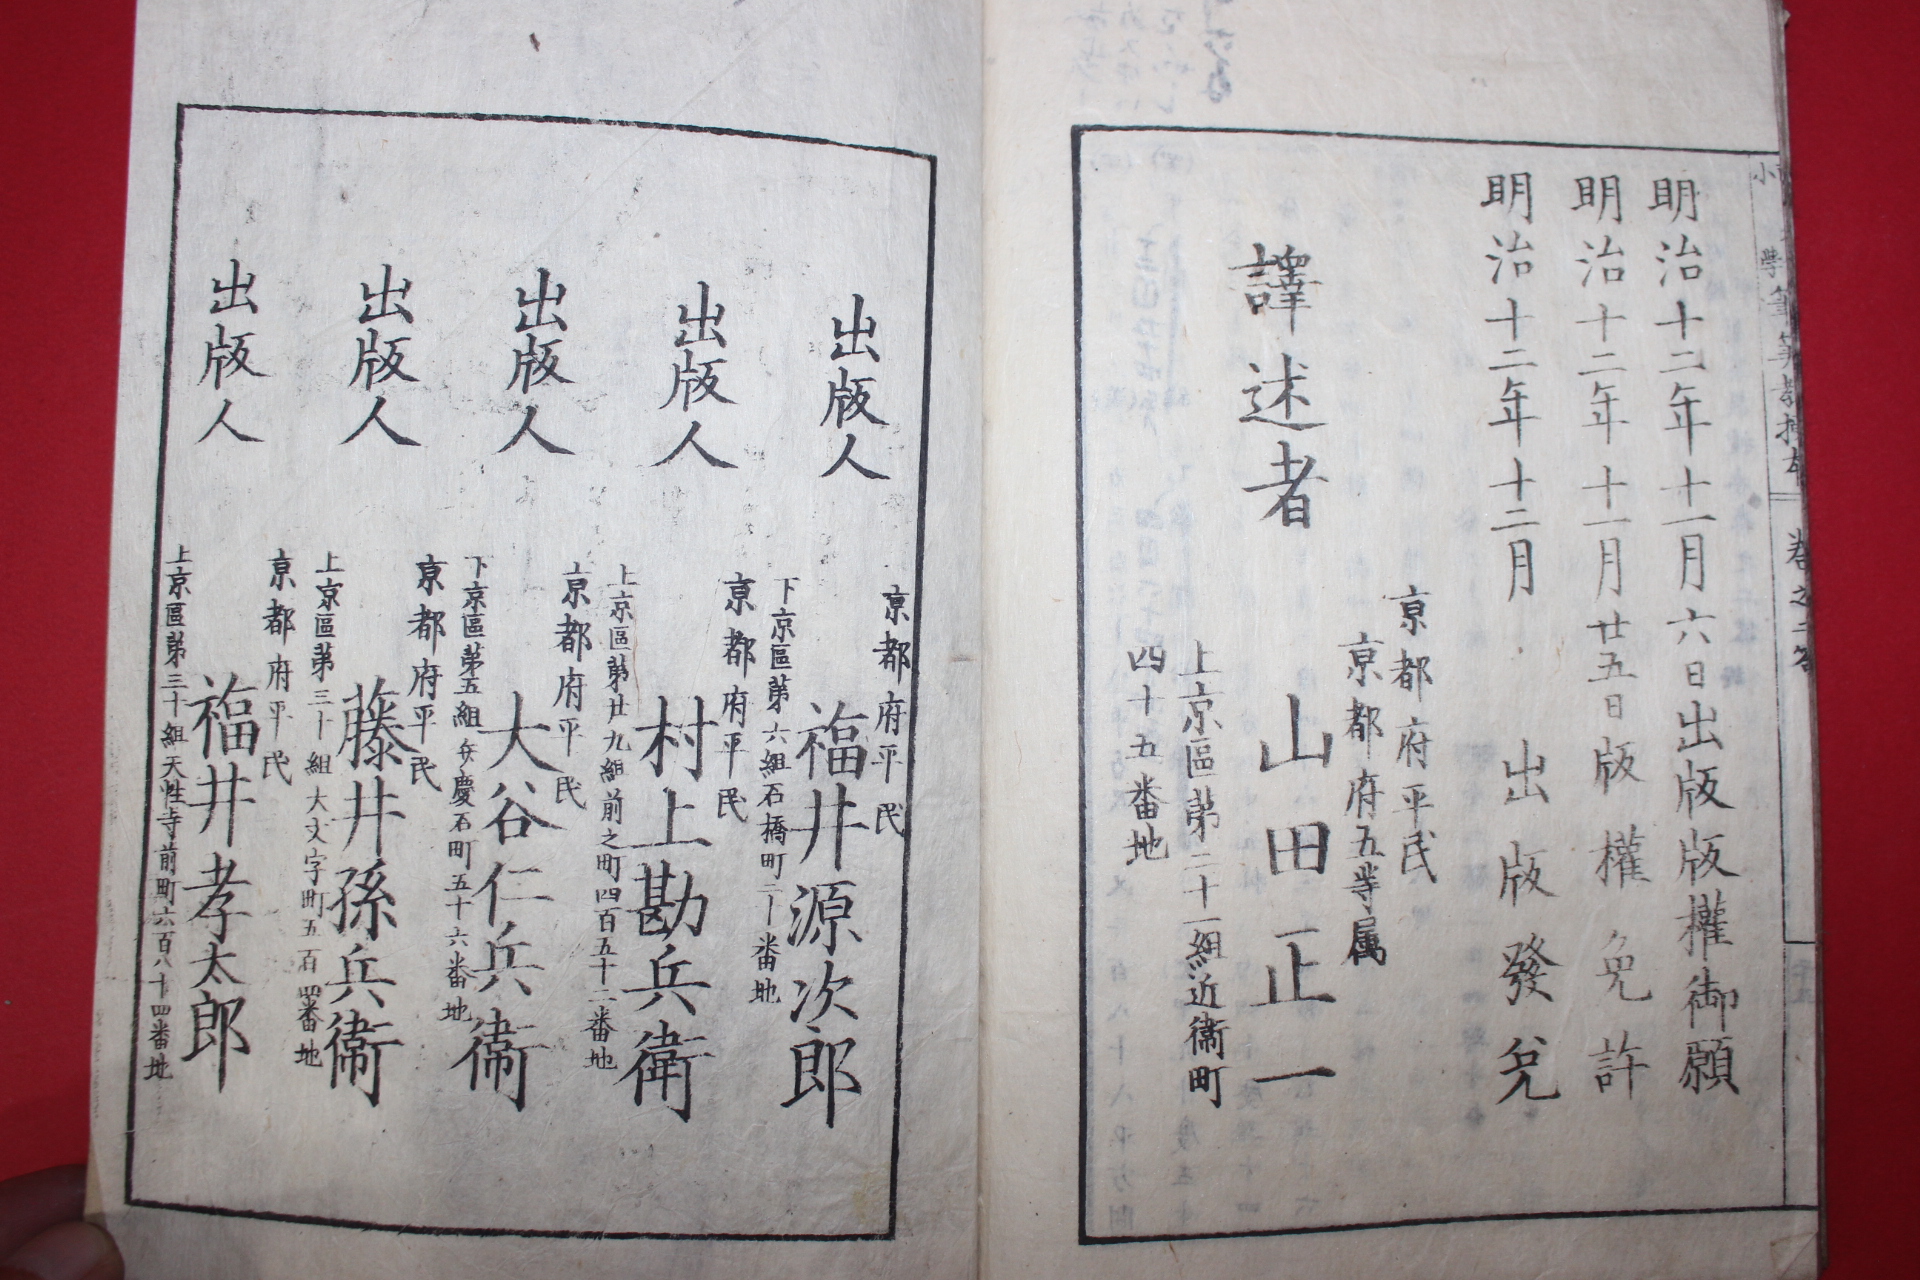 明治十二年十一月六日出版版權御願
明治十二年十一月廿五日版權免許
明治十二年十二月出版發兌
京都府平民
京都府五等属
譯述者 山田正一
上京區第二十一組近衞町
四十五番地
京都府平民
出版人 福井源次郎
下京區第六組石橋町二十番地
京都府平民
出版人 村上勘兵衛
上京區第廿九組前之町四百五十二番地
京都府平民
出版人 大谷仁兵衞
下京區第五組弁慶石町五十六番地
京都府平民
出版人 藤井孫兵衞
上京區第三十組大文字町五百四番地
京都府平民
出版人 福井孝太郎
上京區第三十組天性寺前町六百八十四番地